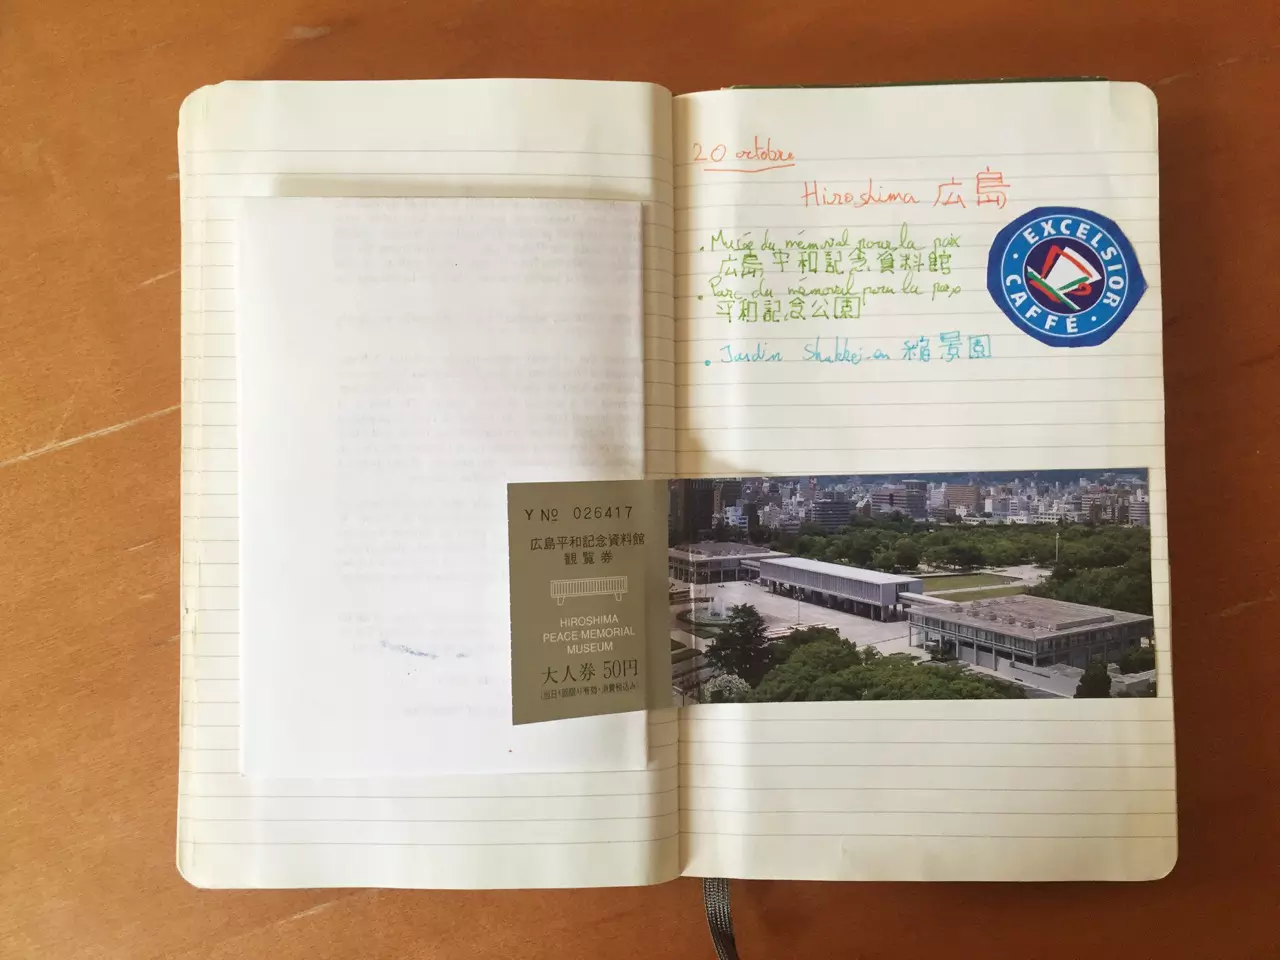 20 octobre
Hiroshima 広島
• Musée du mémorial pour la paix
広島平和記念資料館
• Parc du mémorial pour la paix
平和記念公園
• Jardin Shukkei-en 縮景園
EXCELSIOR
CAFFÉ
Y No 026417
広島平和記念資料館
観覧券
HIROSHIMA
PEACE MEMORIAL
MUSEUM
大人券 50円
(当日1回限り有効・消費税込み)